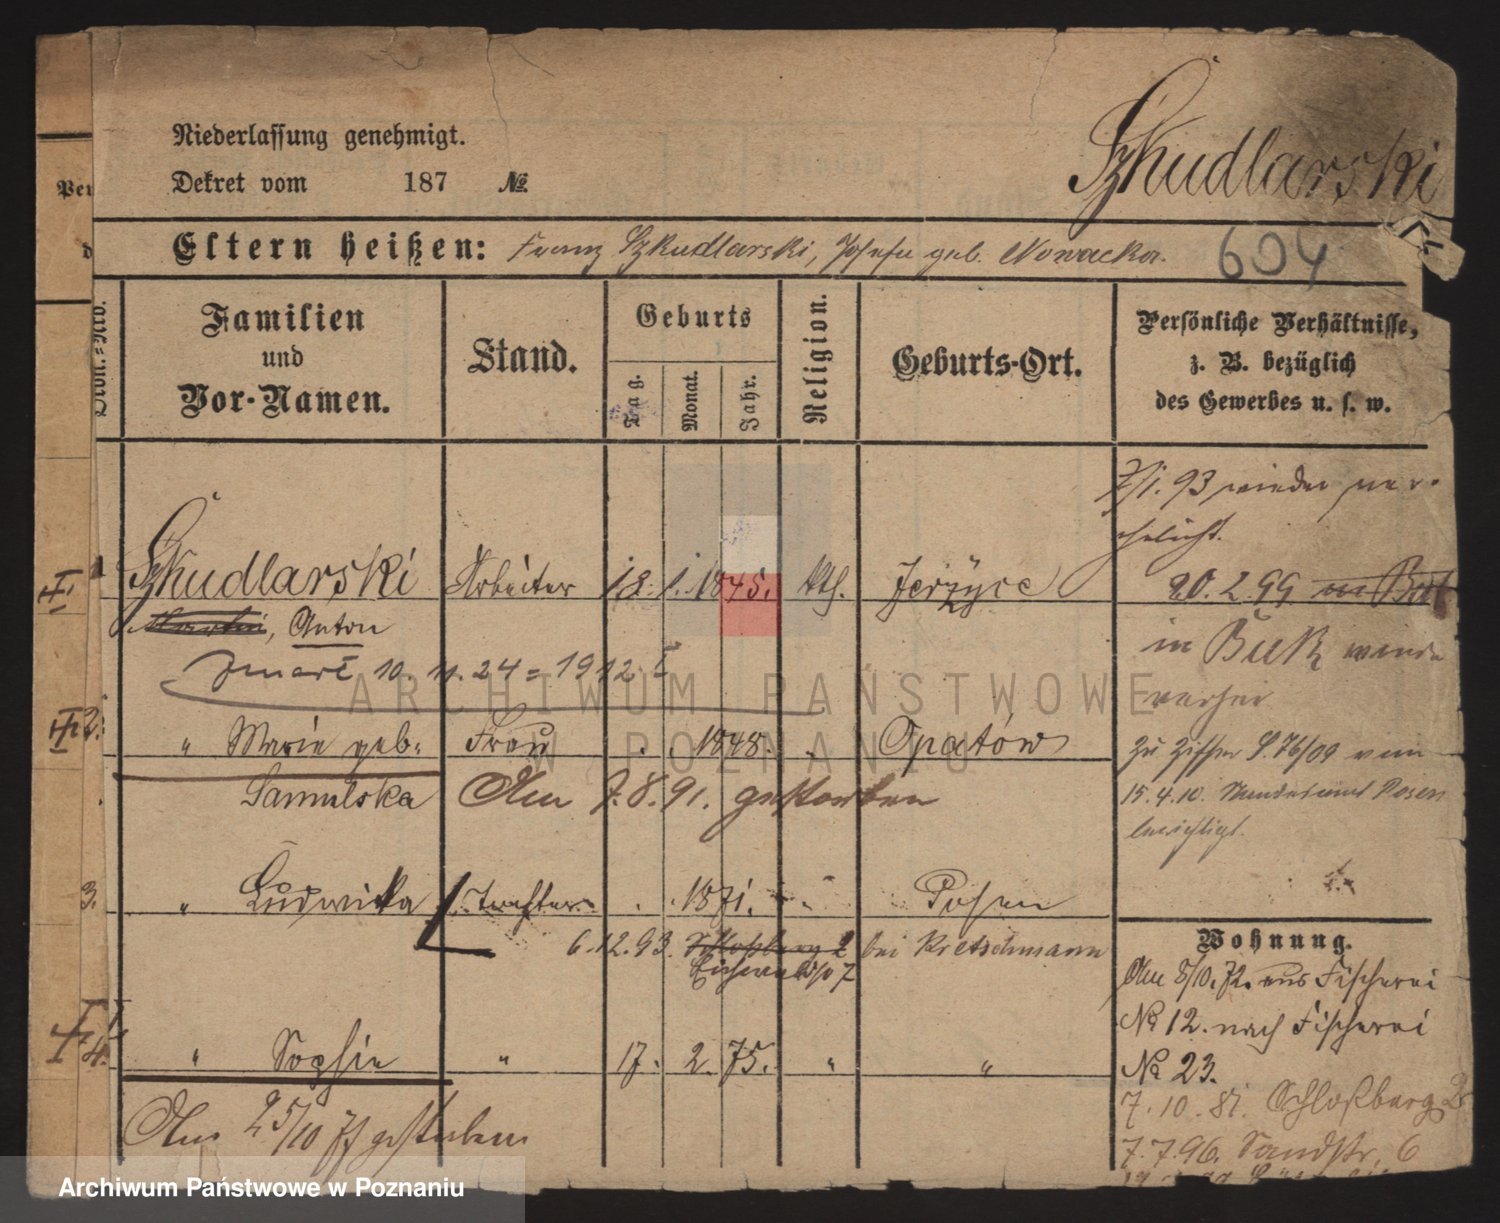 Niederlassung genehmigt.
Dekret vom 187 №
Szkudlarski
Eltern heißen: Franz Szkudlarski, Josefa geb. Nowacka.
604
Familien und Vor-Namen.
Stand.
Geburts
Tag.
Monat.
Jahr.
Religion.
Geburts-Ort.
Persönliche Verhältnisse,
z. B. bezüglich
des Gewerbes u. s. w.
7/1. 93 wieder ver-
ehelicht.
1 Szkudlarski Arbeiter 18. 1. 1845. kth. Jerzyce
Martin, Anton
zmarł 10. 11. 24 = 1912 I
20. 2. 99 in Buk
in Buk
2. " Marie geb. Frau 1848. Opatów
Samulska Am 7. 8. 91. gestorben
Zu Ziffer 76/09 vom
15. 4. 10. Standesamt Posen
berichtigt.
3. " Ludwika Tochter 1871. Posen
6. 12. 93. Schloßberg 2 bei Kretschmann
Eichwaldstr 7
4. " Sophie " 17. 2. 75. " "
Am 25/10 75 gestorben
Wohnung.
Am 5/10. 72. aus Fischerei
№ 12. nach Fischerei
№ 23.
7. 10. 81. Schloßberg 2
7. 7. 96. Sandstr. 6
ARCHIWUM PAŃSTWOWE
W POZNANIU
Archiwum Państwowe w Poznaniu